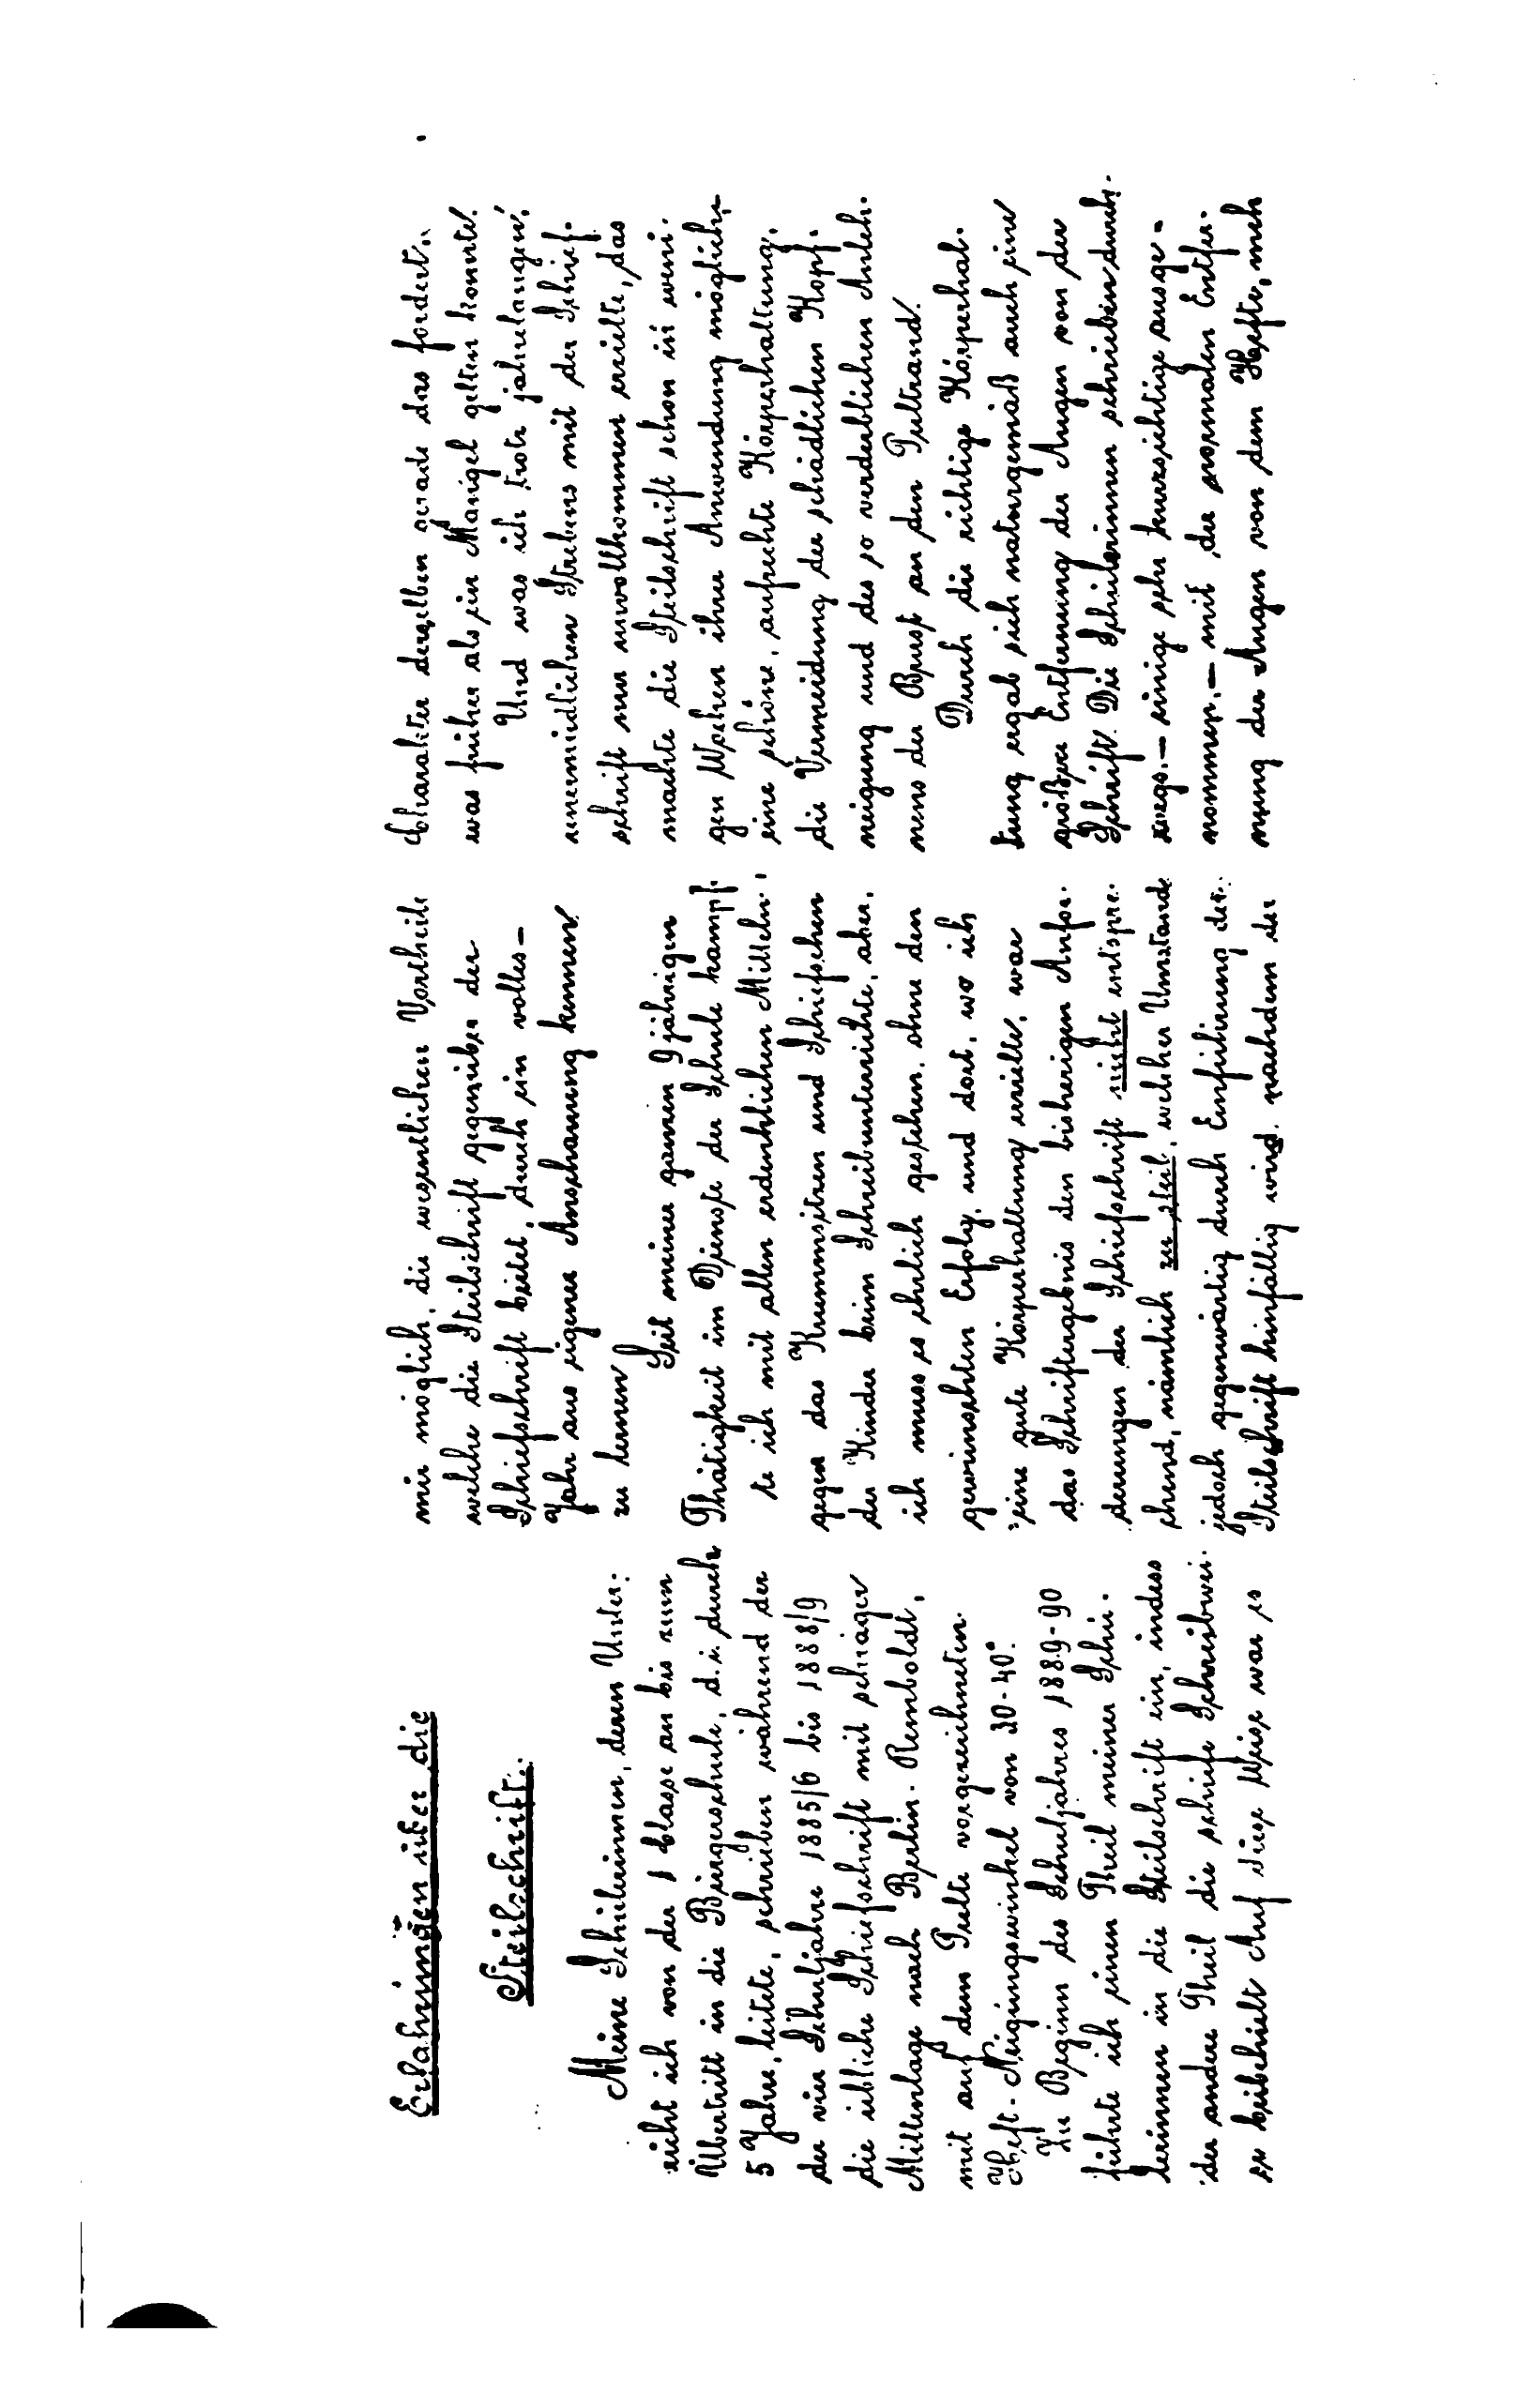 Erfahrungen über die
Steilschrift.
Meine Schülerinnen, deren Unter-
richt ich von der 1 Classe an bis zum
Übertritt in die Bürgerschule, d. i. durch
5 Jahre, leitete, schrieben während der
der vier Schuljahre 1885/6 bis 1888/9
die übliche Schiefschrift mit schräger
Mittenlage nach Berlin-Remboldt,
mit auf dem Pulte vorgezeichneten
Heft-Neigungswinkel von 30-40°.
Zu Beginn des Schuljahres 1889-90
führte ich einen Theil meiner Schü-
lerinnen in die Steilschrift ein, indess
der andere Theil die schiefe Schreibwei-
se beibehielt. Auf diese Weise war es
mir möglich, die wesentlichen Vortheile
welche die Steilschrift gegenüber der
Schiefschrift bietet, durch ein volles
Jahr aus eigener Anschauung kennen
zu lernen.
Seit meiner ganzen 9 jährigen
Thätigkeit im Dienste der Schule kämpf-
te ich mit allen erdenklichen Mitteln
gegen das Krummsitzen und Schiefsehen
der Kinder beim Schreibunterrichte, aber,
ich muss es ehrlich gestehen, ohne den
gewünschten Erfolg, und dort, wo ich
eine gute Körperhaltung erzielte, war
das Schriftergebnis den bisherigen Anfor-
derungen der Schiefschrift nicht entspre-
chend, nämlich zu steil, welcher Umstand
jedoch gegenwärtig durch Einführung der
Steilschrift hinfällig wird, nachdem der
Charakter derselben gerade das fordert,
was früher als ein Mangel gelten konnte.
Und was ich trotz jahrelangen,
unermüdlichen Strebens mit der Schief-
schrift nur unvollkommen erzielte, das
machte die Steilschrift schon in weni-
gen Wochen ihrer Anwendung möglich:
eine schöne, aufrechte Körperhaltung,
die Vermeidung der schädlichen Kopf-
neigung und des so verderblichen Anleh-
nens der Brust an den Pultrand.
Durch die richtige Körperhal-
tung ergab sich naturgemäß auch eine
größere Entfernung der Augen von der
Schrift. Die Schülerinnen schrieben durch-
wegs, – einige sehr kurzsichtige ausge-
nommen, – mit der normalen Entfer-
nung der Augen von dem Hefte, meh